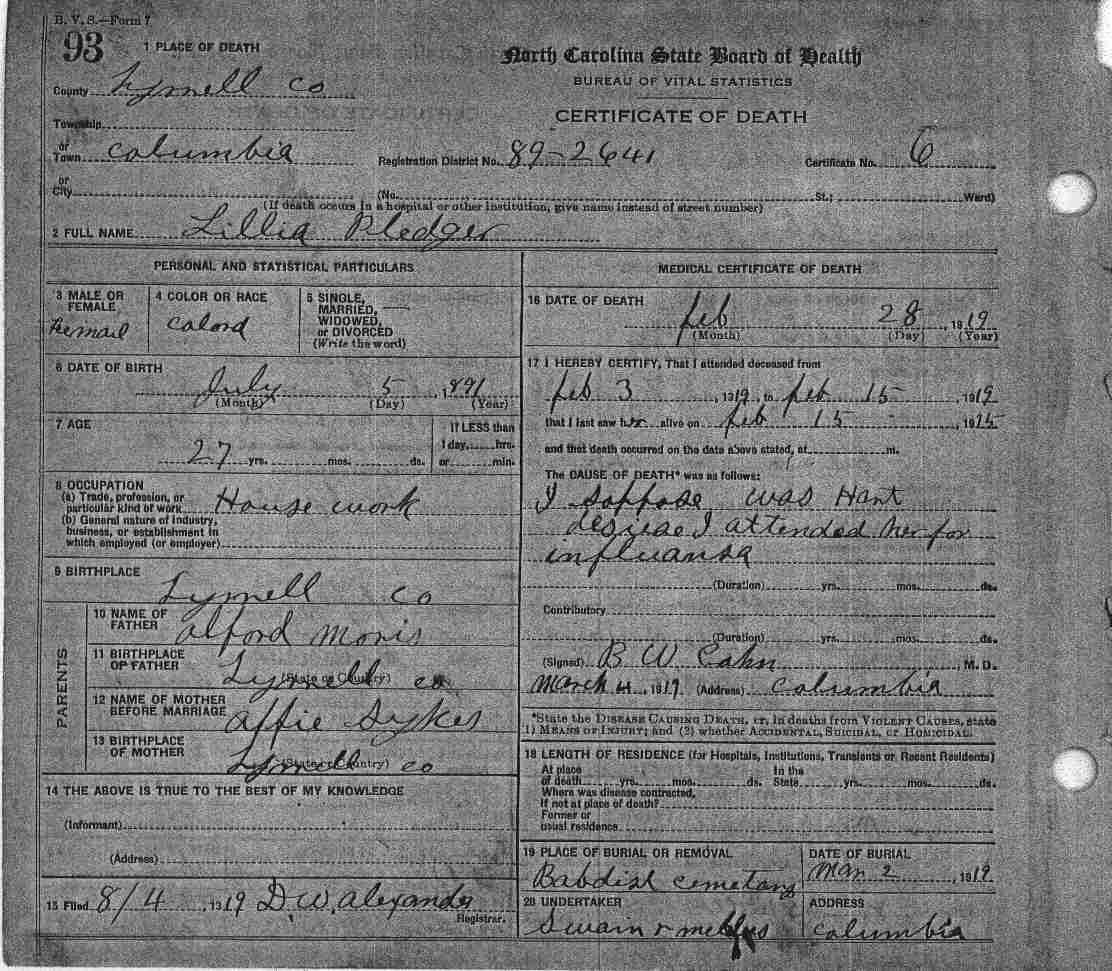 B. V. S.—Form 7
93
1 PLACE OF DEATH
North Carolina State Board of Health
BUREAU OF VITAL STATISTICS
CERTIFICATE OF DEATH
County Tyrrell Co
Township
or Town Columbia
Registration District No. 89-2641
Certificate No. 6
or City (No. St.; Ward)
(If death occurs in a hospital or other institution, give name instead of street number)
2 FULL NAME Lillia Pledger
PERSONAL AND STATISTICAL PARTICULARS
3 MALE OR FEMALE Femail
4 COLOR OR RACE Calord
5 SINGLE, MARRIED, WIDOWED, or DIVORCED (Write the word) —
6 DATE OF BIRTH
July 5, 1891
(Month) (Day) (Year)
7 AGE
27 yrs. mos. ds.
If LESS than
1 day, hrs.
or min.
8 OCCUPATION
(a) Trade, profession, or
particular kind of work House work
(b) General nature of industry,
business, or establishment in
which employed (or employer)
9 BIRTHPLACE
Tyrrell Co
PARENTS
10 NAME OF FATHER Alford Moris
11 BIRTHPLACE OF FATHER (State or Country) Tyrrell Co
12 NAME OF MOTHER BEFORE MARRIAGE Affie Sykes
13 BIRTHPLACE OF MOTHER (State or Country) Tyrrell Co
14 THE ABOVE IS TRUE TO THE BEST OF MY KNOWLEDGE
(Informant)
(Address)
15 Filed 8/4, 1919 D. W. Alexander
Registrar.
MEDICAL CERTIFICATE OF DEATH
16 DATE OF DEATH
Feb 28, 1919
(Month) (Day) (Year)
17 I HEREBY CERTIFY, That I attended deceased from
Feb 3, 1919, to Feb 15 1919
that I last saw her alive on Feb 15, 19
and that death occurred on the date above stated, at m.
The CAUSE OF DEATH* was as follows:
I soppose was Hart
desiese I attended her for
influansa
(Duration) yrs. mos. ds.
Contributory
(Duration) yrs. mos. ds.
(Signed) B W Cahn M. D.
March 4, 1919 (Address) Columbia
*State the DISEASE CAUSING DEATH, or, in deaths from VIOLENT CAUSES, state
1) MEANS OF INJURY; and (2) whether ACCIDENTAL, SUICIDAL, or HOMICIDAL.
18 LENGTH OF RESIDENCE (for Hospitals, Institutions, Transients or Recent Residents)
At place of death yrs. mos. ds. In the State yrs. mos. ds.
Where was disease contracted,
If not at place of death?
Former or
usual residence
19 PLACE OF BURIAL OR REMOVAL
Babdist Cemetary
DATE OF BURIAL
Mar 2, 1919
20 UNDERTAKER
Swain &
ADDRESS
Columbia